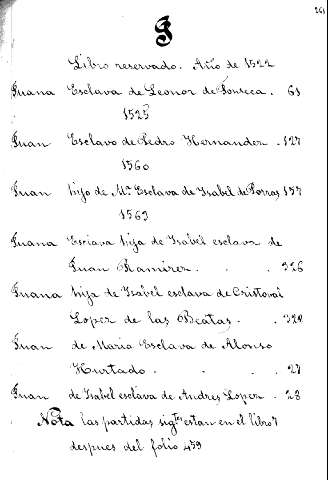 261
J
Libro reservado. Año de 1522
Juana Esclava de Leonor de Fonseca. 61
1525
Juan Esclavo de Pedro Hernandez. 127
1560
Juan hijo de Mª Esclava de Isabel de Porras 157
1563
Juana Esclava hija de Isabel esclava de
Juan Ramirez. . . 326
Juana hija de Isabel esclava de Cristoval
Lopez de las Beatas. .
Juan de Maria Esclava de Alonso
Hurtado. . . . 27
Juan de Isabel esclava de Andres Lopez. 28
Nota las partidas sigtes estan en el libro 7
despues del folio 459